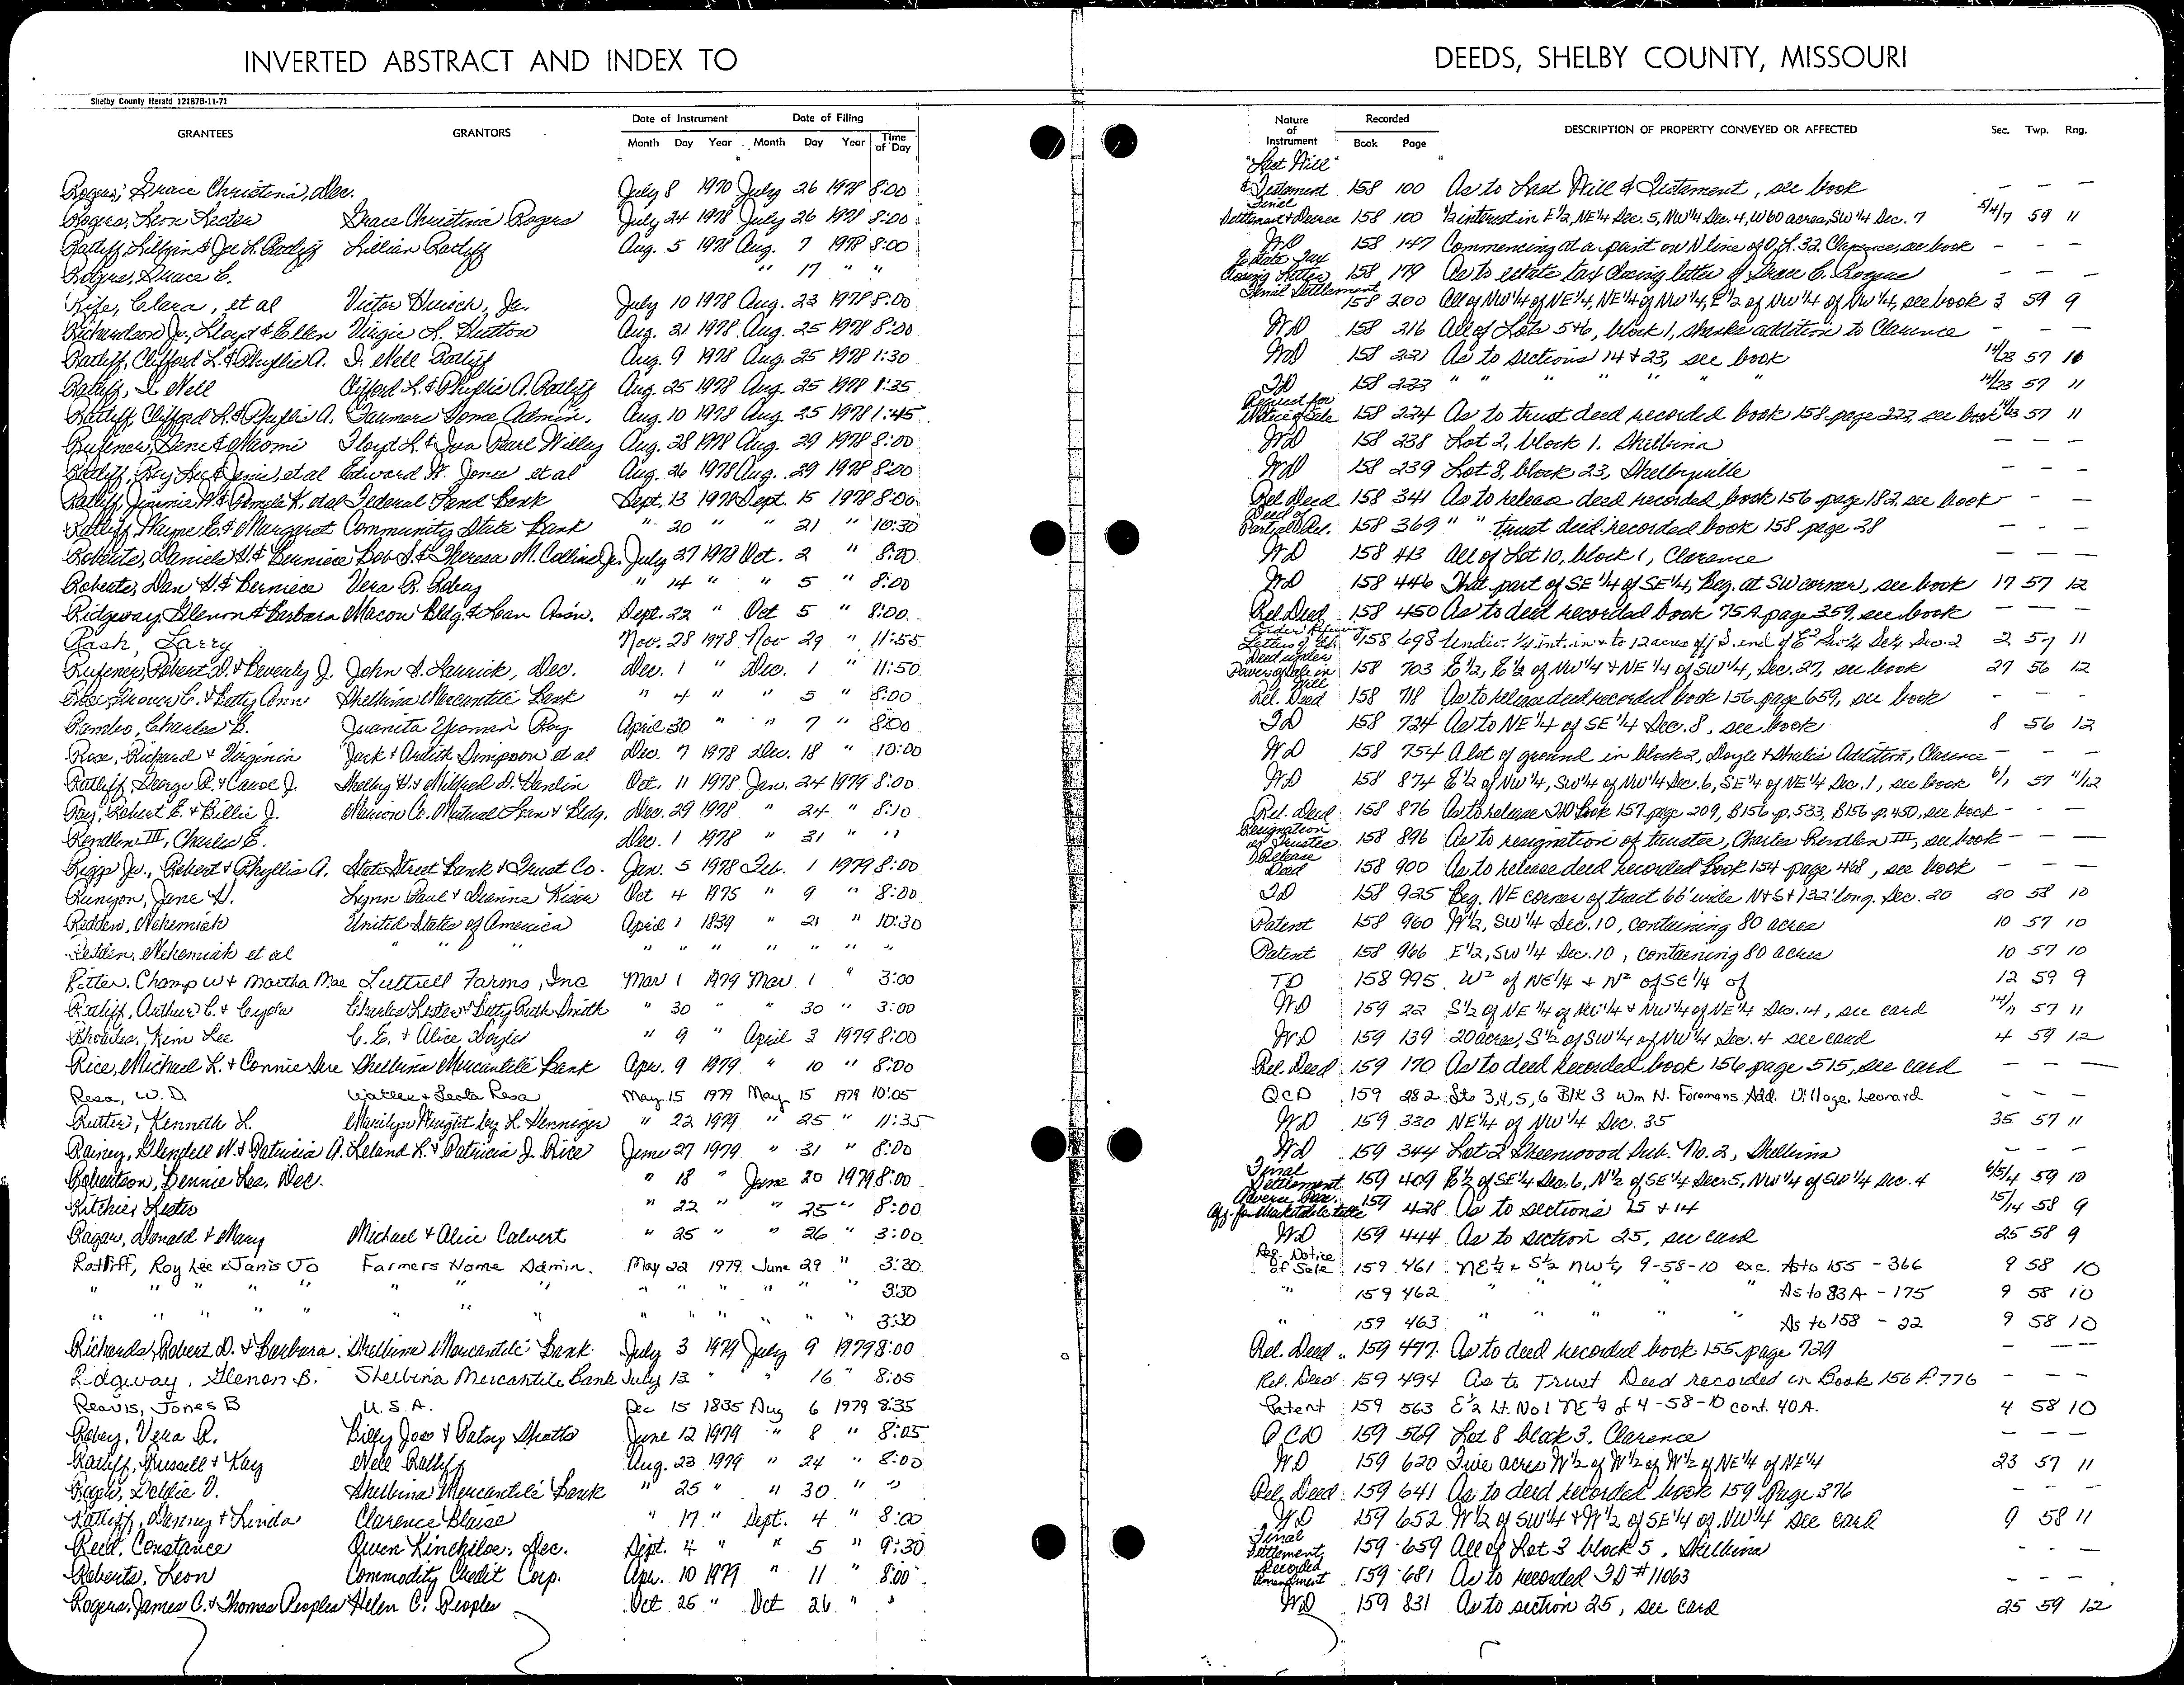 INVERTED ABSTRACT AND INDEX TO DEEDS, SHELBY COUNTY, MISSOURI
Shelby County Herald 12187B-11-71
GRANTEES GRANTORS Date of Instrument Date of Filing Nature of Instrument Recorded DESCRIPTION OF PROPERTY CONVEYED OR AFFECTED Sec. Twp. Rng.
Month Day Year Month Day Year Time of Day Book Page
Rogers, Grace Christina, Dec. July 8 1970 July 26 1978 8:00 "Last Will & Testament 158 100 As to Last Will & Testament, see book — — —
Rogers, Leon Lester Grace Christina Rogers July 24 1978 July 26 1978 8:00 Final Settlement & Decree 158 100 1/2 interest in E1/2, NE1/4 Sec. 5, NW1/4 Sec. 4, W60 acres, SW1/4 Sec. 7 5/4/7 59 11
Ratliff, Lillian & Joe L. Ratliff Lillian Ratliff Aug. 5 1978 Aug. 7 1978 8:00 WD 158 147 Commencing at a point on N line of O.L. 32, Clarence, see book - - -
Rogers, Grace C. " 17 " " Estate Tax Closing Letter 158 179 As to estate tax closing letter of Grace C. Rogers — — -
Rife, Clara, et al Victor Hirsch, Jr. July 10 1978 Aug. 23 1978 8:00 Final Settlement 158 200 All of NW1/4 of NE1/4, NE1/4 of NW1/4, E1/2 of NW1/4 of NW1/4, see book 3 59 9
Richardson Jr., Lloyd & Ellen Virgie L. Hutton Aug. 21 1978 Aug. 25 1978 8:00 WD 158 216 All of Lots 5+6, block 1, Shanks addition to Clarence - - -
Ratliff, Clifford L. & Phyllis A. I. Nell Ratliff Aug. 9 1978 Aug. 25 1978 1:30 WD 158 221 As to sections 14 + 23, see book 14/23 57 11
Ratliff, I. Nell Clifford L. & Phyllis A. Ratliff Aug. 25 1978 Aug. 25 1978 1:35 TD 158 222 " " " " " " 14/23 57 11
Ratliff, Clifford L. & Phyllis A. Farmers Home Admin. Aug. 10 1978 Aug 25 1978 1:45 Request for Notice of Sale 158 224 As to trust deed recorded book 158 page 222, see book 14/23 57 11
Rufener, Gene & Naomi Floyd L. & Iva Pearl Willey Aug. 28 1978 Aug. 29 1978 8:00 WD 158 238 Lot 2, block 1. Shelbina — — —
Ratliff, Roy Lee & Janis, et al Edward W. Jones et al Aug. 26 1978 Aug. 29 1978 8:00 WD 158 239 Lot 8, block 23, Shelbyville — - -
Ratliff, Jimmie W. & Pamela K. et al Federal Land Bank Sept. 13 1978 Sept. 15 1978 8:00 Rel. Deed 158 341 As to release deed recorded book 156 page 182, see book - - —
Ratliff, Wayne E. & Margaret Community State Bank " 20 " " 21 " 10:30 Deed of Partial Rel. 158 369 " " trust deed recorded book 158 page 28 - - -
Roberts, Daniels H. & Berniece Bob S. & Theresa M. Collins Jr. July 27 1978 Oct. 2 " 8:00 WD 158 413 All of Lot 10, block 1, Clarence — — —
Roberts, Dan H. & Berniece Vera R. Robey " 14 " " 5 " 8:00 WD 158 446 That part of SE1/4 of SE1/4, Beg. at SW corner, see book 17 57 12
Ridgeway, Glenon & Barbara Macon Bldg. & Loan Assn. Sept. 22 " Oct 5 " 8:00 Rel. Deed 158 450 As to deed recorded book 75A page 359, see book — — —
Rash, Larry Nov. 28 1978 Nov 29 " 11:55 Letters of 158 698 Undiv. 1/4 int. in + to 12 acres of S. end of E2 Sw 1/4 Se 1/4 Sec. 2 2 57 11
Rufener, Robert D. & Beverly J. John S. Larrick, Dec. Dec. 1 " Dec. 1 " 11:50 Deed under Power of Sale in Will 158 703 E1/2, E1/2 of NW1/4 & NE1/4 of SW1/4, Sec. 27, see book 27 56 12
Rose, Grover C. & Betty Ann Shelbina Mercantile Bank " 4 " " 5 " 8:00 Rel. Deed 158 718 As to release deed recorded book 156 page 659, see book - - -
Rambo, Charles B. Juanita Yeoman Roy April 30 " " 7 " 8:00 TD 158 724 As to NE1/4 of SE1/4 Sec. 8, see book 8 56 12
Rose, Richard & Virginia Jack & Ardith Simpson et al Dec. 7 1978 Dec. 18 " 10:00 WD 158 754 A lot of ground in block 2, Doyle & Shale's Addition, Clarence — - -
Ratliff George R. & Carol J. Shelby H. & Mildred D. Hardin Oct. 11 1978 Jan. 24 1979 8:00 WD 158 874 E1/2 of NW1/4, SW1/4 of NW1/4 Sec. 6, SE1/4 of NE1/4 Sec. 1, see book 6/1 57 11/12
Ray, Robert E. & Billie J. Marion Co. Mutual Loan & Bldg. Dec. 29 1978 " 24 " 8:10 Rel. Deed 158 876 As to release TD book 157 page 209, B156 p. 533, B156 p. 450, see book - - —
Rendlen III, Charles E. Dec. 1 1978 " 31 " " Resignation of Trustee 158 896 As to resignation of trustee, Charles Rendlen III, see book - — —
Riggs Jr., Robert & Phyllis A. State Street Bank & Trust Co. Jan. 5 1978 Feb. 1 1979 8:00 Release Deed 158 900 As to release deed recorded book 154 page 468, see book - — -
Runyon, Jane H. Lynn Paul & Dianne Kiser Oct 4 1975 " 9 " 8:00 TD 158 925 Beg. NE corner of tract 66' wide N+S + 132' long. Sec. 20 20 58 10
Redden, Nehemiah United States of America April 1 1839 " 21 " 10:30 Patent 158 960 W1/2, SW1/4 Sec. 10, containing 80 acres 10 57 10
Redden, Nehemiah et al " " " " " " " " " " Patent 158 966 E1/2, SW1/4 Sec. 10, containing 80 acres 10 57 10
Ritter, Champ W & Martha Mae Luttrell Farms, Inc Mar 1 1979 Mar 1 " 3:00 TD 158 995 W2 of NE1/4 + N2 of SE1/4 of 12 59 9
Ratliff, Arthur C. & Clyda Charles Lester & Betty Ruth Smith " 30 " " 30 " 3:00 WD 159 22 S1/2 of NE1/4 of NE1/4 + NW1/4 of NE1/4 Sec. 14, see card 57 11
Rhoades, Kim Lee C. E. & Alice Doyle " 9 " April 3 1979 8:00 WD 159 139 20 acres, S1/2 of SW1/4 of NW1/4 Sec. 4 see card 4 59 12
Rice, Michael L. & Connie Sue Shelbina Mercantile Bank Apr. 9 1979 " 10 " 8:00 Rel. Deed 159 170 As to deed recorded book 156 page 515, see card — — —
Resa, W.D. Walter & Leola Resa May 15 1979 May 15 1979 10:05 QCD 159 282 Lts 3,4,5,6 Blk 3 Wm N. Foremans Add. Village Leonard - - -
Rutter, Kenneth L. Marilyn Wright by L. Henniger " 22 1979 " 25 " 11:35 WD 159 330 NE1/4 of NW1/4 Sec. 35 35 57 11
Rainey, Glendell N. & Patricia A. Leland L. & Patricia J. Rice June 27 1979 " 31 " 8:00 WD 159 344 Lot 2 Greenwood Sub. No. 2, Shelbina — - -
Robertson, Bennie Lea, Dec. " 18 " June 20 1979 8:00 Final Settlement 159 409 E1/2 of SE1/4 Sec. 6, N1/2 of SE1/4 Sec. 5, NW1/4 of SW1/4 Sec. 4 6/5/4 59 10
Ritchie, Lester " 22 " " 25 " 8:00 Adverse Poss. Aff. for Marketable title 159 428 As to sections 15 + 14 15/14 58 9
Ragan, Donald & Mary Michael & Alice Calvert " 25 " " 26 " 3:00 WD 159 444 As to section 25, see card 25 58 9
Ratliff, Roy Lee & Janis Jo Farmers Home Admin. May 22 1979 June 29 " 3:30 Req. Notice of Sale 159 461 NE1/4 + S1/2 NW1/4 9-58-10 exc. As to 155 - 366 9 58 10
" " " " " " " " " " " " " " 3:30 " 159 462 " " " As to 83A - 175 9 58 10
" " " " " " " " " " " " " " 3:30 " 159 463 " " " " " As to 158 - 22 9 58 10
Richards, Robert D. & Barbara Shelbina Mercantile Bank July 3 1979 July 9 1979 8:00 Rel. Deed 159 477 As to deed recorded book 155 page 729 — — —
Ridgway, Glenon B. Shelbina Mercantile Bank July 13 " " 16 " 8:05 Rel. Deed 159 494 As to Trust Deed recorded in Book 156 P. 776 - - -
Reavis, Jones B U.S.A. Dec 15 1835 Aug 6 1979 8:35 Patent 159 563 E1/2 Lt. No 1 NE1/4 of 4-58-10 cont. 40A. 4 58 10
Robey, Vera R. Billy Joe & Patsy Shotts June 12 1979 " 8 " 8:05 QCD 159 569 Lot 8 block 3, Clarence — — —
Ratliff, Russell & Kay Nell Ratliff Aug. 23 1979 " 24 " 8:00 WD 159 620 Five acres W1/2 of W1/2 of W1/2 of NE1/4 of NE1/4 23 57 11
Shelbina Mercantile Bank " 25 " " 30 " " Rel. Deed 159 641 As to deed recorded book 159 Page 376 - - -
Ratliff, Danny & Linda Clarence Blaise " 17 " Sept. 4 " 8:00 WD 159 652 W1/2 of SW1/4 + W1/2 of SE1/4 of NW1/4 see card 9 58 11
Reed, Constance Owen Kincheloe, Dec. Sept. 4 " " 5 " 9:30 Final Settlement 159 659 All of Lot 3 block 5, Shelbina - - -
Roberts, Leon Commodity Credit Corp. Apr. 10 1979 " 11 " 8:00 Recorded Amendment 159 681 As to recorded TD # 11063 - - -
Rogers, James C. & Thomas Peoples Helen C. Peoples Oct 25 " Oct 26 " " WD 159 831 As to section 25, see card 25 59 12